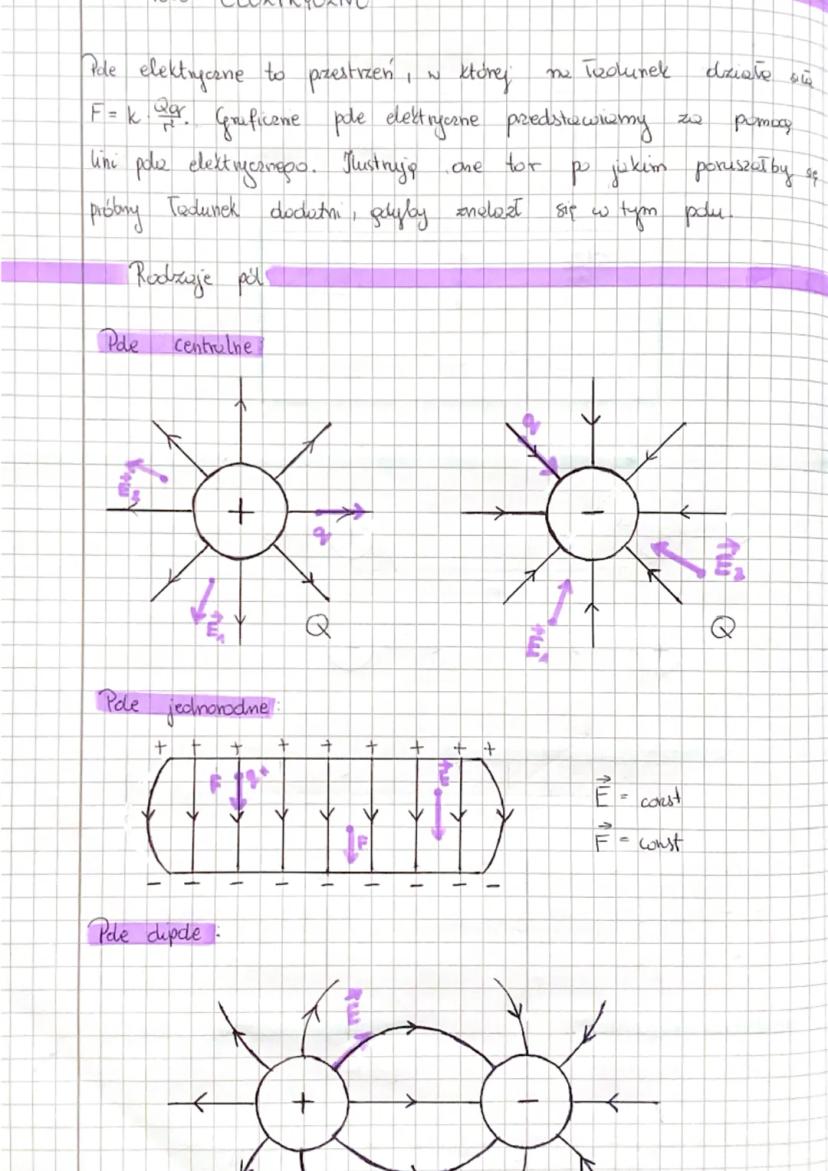 ELEKTRYCZNE
Pole elektryczne to przestrzeń, w której na ładunek działa siła
F = k · Qq/r². Graficzne pole elektryczne przedstawiamy za pomocą
lini pola elektrycznego. Ilustrują one tor po jakim poruszałby się
próbny ładunek dodatni, gdyby znalazł się w tym polu.
Rodzaje pól
Pole centralne:
+ −
q
E⃗₂
q
E⃗₂
E⃗₁ Q
E⃗₁ Q
Pole jednorodne:
+ + + + + + + + +
F q+ E⃗
F
E⃗ = const
F⃗ = const
− − − − − − − − −
Pole dipola:
E⃗
+ −